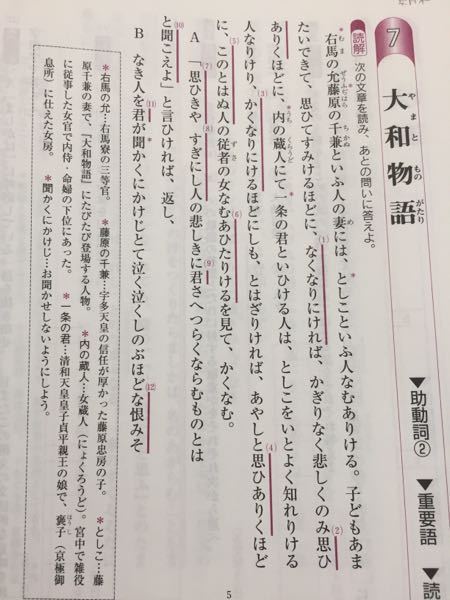 7 大和物語
やまとものがたり
▼助動詞② ▼重要語 ▼読
読解 次の文章を読み、あとの問いに答えよ。
*右馬の允藤原の千兼といふ人の妻には、*としこといふ人なむありける。子どもあま
たいできて、思ひてすみけるほどに、(1)なくなりにければ、かぎりなく悲しくのみ(2)思ひ
ありくほどに、*内の蔵人にて*一条の君といひける人は、としこをいとよく知れりける
人なりけり。(3)かくなりにけるほどにしも、とはざりければ、あやしと(4)思ひありくほど
に、(5)このとはぬ人の従者の女なむ(6)あひたりけるを見て、かくなむ。
A 「(7)思ひきや(8)すぎにし人の悲しきに(9)君さへつらくならむものとは
(10)と聞こえよ」と言ひければ、返し、
B なき人を(11)君が*聞かくにかけじとて泣く泣くしのぶほど(12)な恨みそ
*右馬の允…右馬寮の三等官。 *藤原の千兼…宇多天皇の信任が厚かった藤原忠房の子。 *としこ…藤
原千兼の妻で、『大和物語』にたびたび登場する人物。 *内の蔵人…女蔵人(にょくろうど)。宮中で雑役
に従事した女官で内侍・命婦の下位にあった。 *一条の君…清和天皇皇子貞平親王の娘で、褒子(京極御
息所)に仕えた女房。 *聞かくにかけじ…お聞かせしないようにしよう。
5